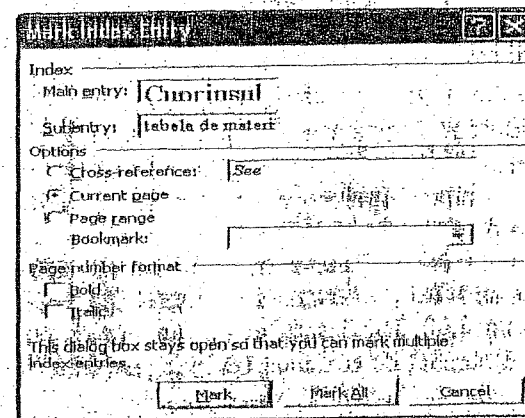 Mark Index Entry
Index
Main entry: Cuprinsul
Subentry: tabela de materi
Options
Cross-reference: See
Current page
Page range
Bookmark:
Page number format
Bold
Italic
This dialog box stays open so that you can mark multiple
index entries.
Mark Mark All Cancel